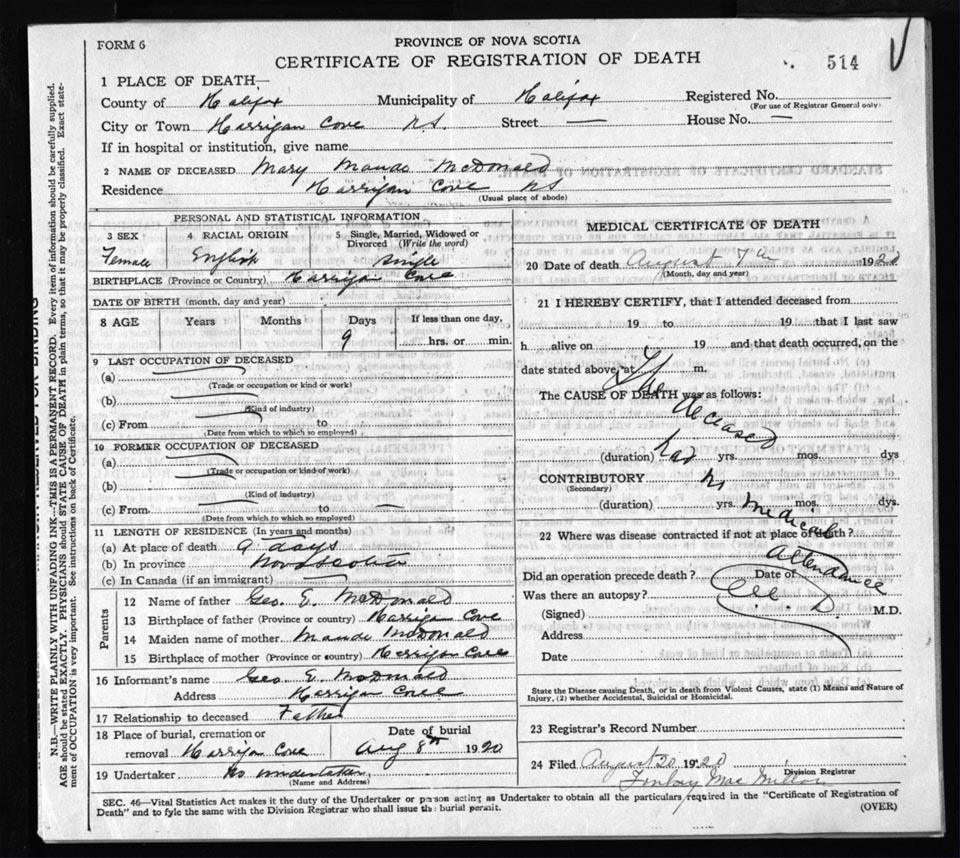 FORM 6
PROVINCE OF NOVA SCOTIA
CERTIFICATE OF REGISTRATION OF DEATH
514
1 PLACE OF DEATH—
County of Halifax Municipality of Halifax Registered No.
(For use of Registrar General only)
City or Town Harrigan Cove N.S. Street — House No. —
If in hospital or institution, give name
2 NAME OF DECEASED Mary Maude McDonald
Residence Harrigan Cove NS
(Usual place of abode)
PERSONAL AND STATISTICAL INFORMATION
3 SEX 4 RACIAL ORIGIN 5 Single, Married, Widowed or Divorced (Write the word)
Female English Single
BIRTHPLACE (Province or Country) Harrigan Cove
DATE OF BIRTH (month, day and year)
8 AGE Years Months Days If less than one day,
9 hrs. or min.
9 LAST OCCUPATION OF DECEASED
(a)
(Trade or occupation or kind or work)
(b)
(Kind of industry)
(c) From to
(Date from which to which employed)
10 FORMER OCCUPATION OF DECEASED
(a)
(Trade or occupation or kind of work)
(b)
(Kind of industry)
(c) From to —
(Date from which to which so employed)
11 LENGTH OF RESIDENCE (In years and months)
(a) At place of death 9 days
(b) In province Nova Scotia
(c) In Canada (if an immigrant)
Parents
12 Name of father Geo. E. McDonald
13 Birthplace of father (Province or Country) Harrigan Cove
14 Maiden name of mother Maude McDonald
15 Birthplace of mother (Province or country) Harrigan Cove
16 Informant's name Geo. E. McDonald
Address Harrigan Cove
17 Relationship to deceased Father
18 Place of burial, cremation or removal Harrigan Cove
Date of burial Aug 8th 1920
19 Undertaker No undertaker
(Name and Address)
MEDICAL CERTIFICATE OF DEATH
20 Date of death August 7th 1920
(Month, day and year)
21 I HEREBY CERTIFY, that I attended deceased from
19 to 19 that I last saw
h alive on 19 and that death occurred, on the
date stated above, at m.
The CAUSE OF DEATH was as follows:
The deceased had no medical attendance
(duration) yrs. mos. dys
CONTRIBUTORY
(Secondary)
(duration) yrs. mos. dys.
22 Where was disease contracted if not at place of death?
Did an operation precede death? Date of
Was there an autopsy?
(Signed) M.D.
Address
Date
State the Disease causing Death, or in death from Violent Causes, state (1) Means and Nature of
Injury, (2) whether Accidental, Suicidal or Homicidal.
23 Registrar's Record Number
24 Filed August 20 1920
Finlay MacMillan
Division Registrar
SEC. 46—Vital Statistics Act makes it the duty of the Undertaker or person acting as Undertaker to obtain all the particulars required in the "Certificate of Registration of
Death" and to fyle the same with the Division Registrar who shall issue the burial permit. (OVER)
N.B.—WRITE PLAINLY WITH UNFADING INK—THIS IS A PERMANENT RECORD. Every item of information should be carefully supplied.
AGE should be stated EXACTLY. PHYSICIANS should STATE CAUSE OF DEATH in plain terms, so that it may be properly classified. Exact state-
ment of OCCUPATION is very important. See instructions on back of Certificate.